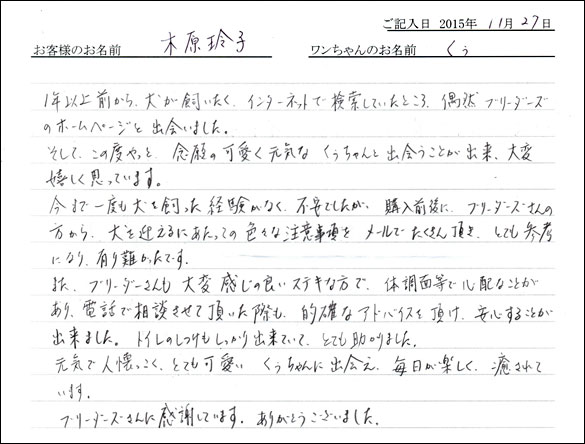 ご記入日 2015年 11月 27日
お客様のお名前 木原玲子 ワンちゃんのお名前 くぅ
1年以上前から、犬が飼いたく、インターネットで検索していたところ、偶然 ブリーダーズ
のホームページと出会いました。
そして、この度やっと、念願の可愛く元気な くぅちゃんと出会うことが出来、大変
嬉しく思っています。
今まで一度も犬を飼った経験がなく、不安でしたが、購入前後に、ブリーダーズさんの
方から、犬を迎えるにあたっての色々な注意事項をメールでたくさん頂き、とても参考
になり、有り難かったです。
また、ブリーダーさんも大変感じの良いステキな方で、体調面等で心配なことが
あり、電話で相談させて頂いた際も、的確なアドバイスを頂け、安心することが
出来ました。トイレのしつけもしっかり出来ていて、とても助かりました。
元気で人懐っこく、とても可愛い くぅちゃんに出会え、毎日が楽しく、癒されて
います。
ブリーダーズさんに感謝しています。ありがとうございました。